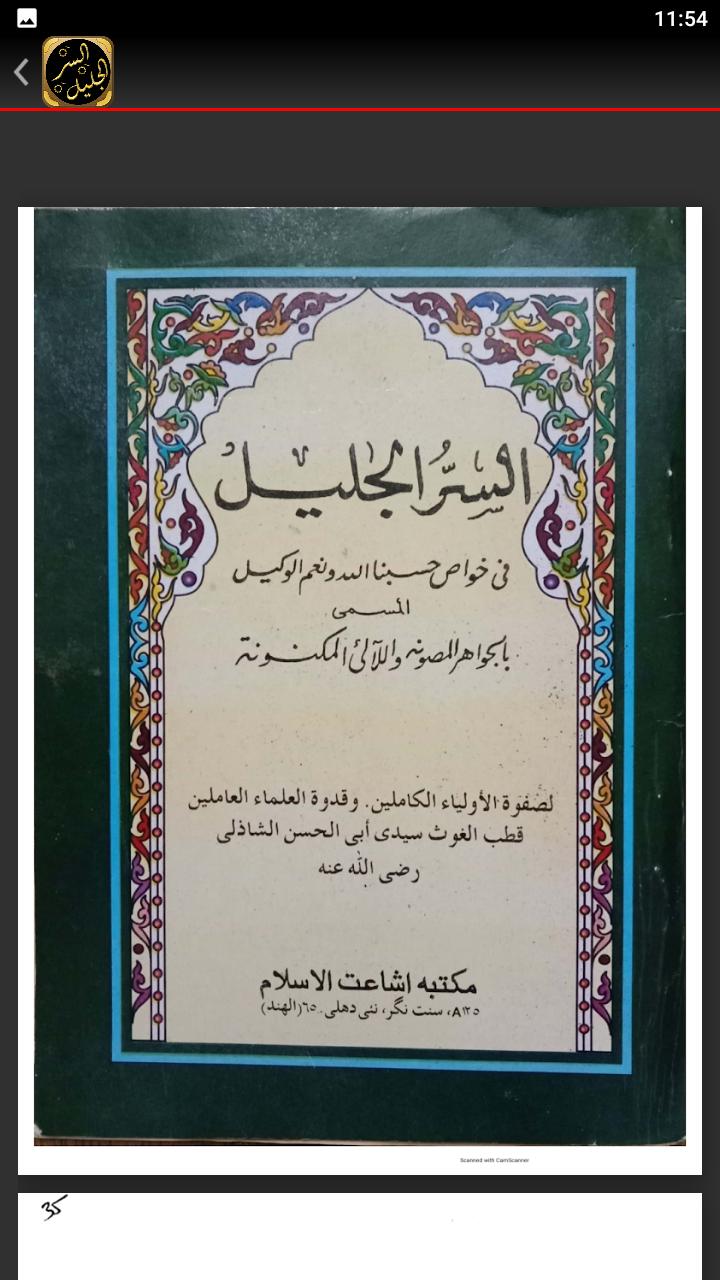 11:54
السر الجليل
السِّرُّ الجَليل
فى خواص حسبنا الله ونعم الوكيل
المسمى
بالجواهر المصونه واللآلئ المكنونة
لصفوة الأولياء الكاملين. وقدوة العلماء العاملين
قطب الغوث سيدى أبى الحسن الشاذلى
رضى الله عنه
مكتبه اشاعت الاسلام
A۱۲٥، سنت نگر، نئى دهلى۔ ٦٥(الهند)
Scanned with CamScanner
35